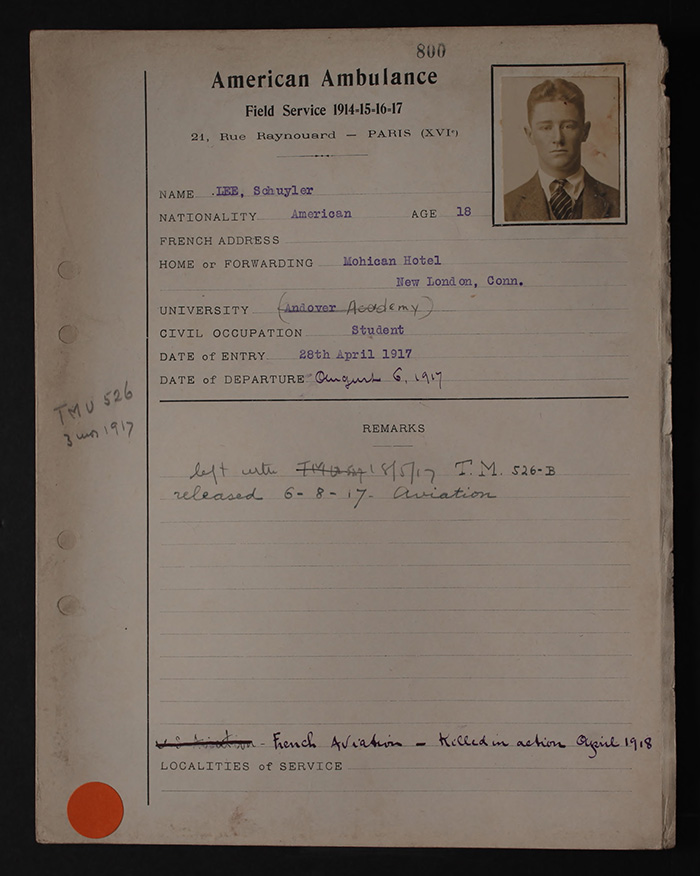 800
American Ambulance
Field Service 1914-15-16-17
21, Rue Raynouard — PARIS (XVIe)
NAME .LEE, Schuyler
NATIONALITY American AGE 18
FRENCH ADDRESS
HOME or FORWARDING Mohican Hotel
New London, Conn.
UNIVERSITY (Andover Academy)
CIVIL OCCUPATION Student
DATE of ENTRY 28th April 1917
DATE of DEPARTURE August 6, 1917
TMU 526
3 mos 1917
REMARKS
left with 18/5/17 T.M. 526-B
released 6-8-17- Aviation
U.S. Aviation - French Aviation – Killed in action April 1918
LOCALITIES of SERVICE